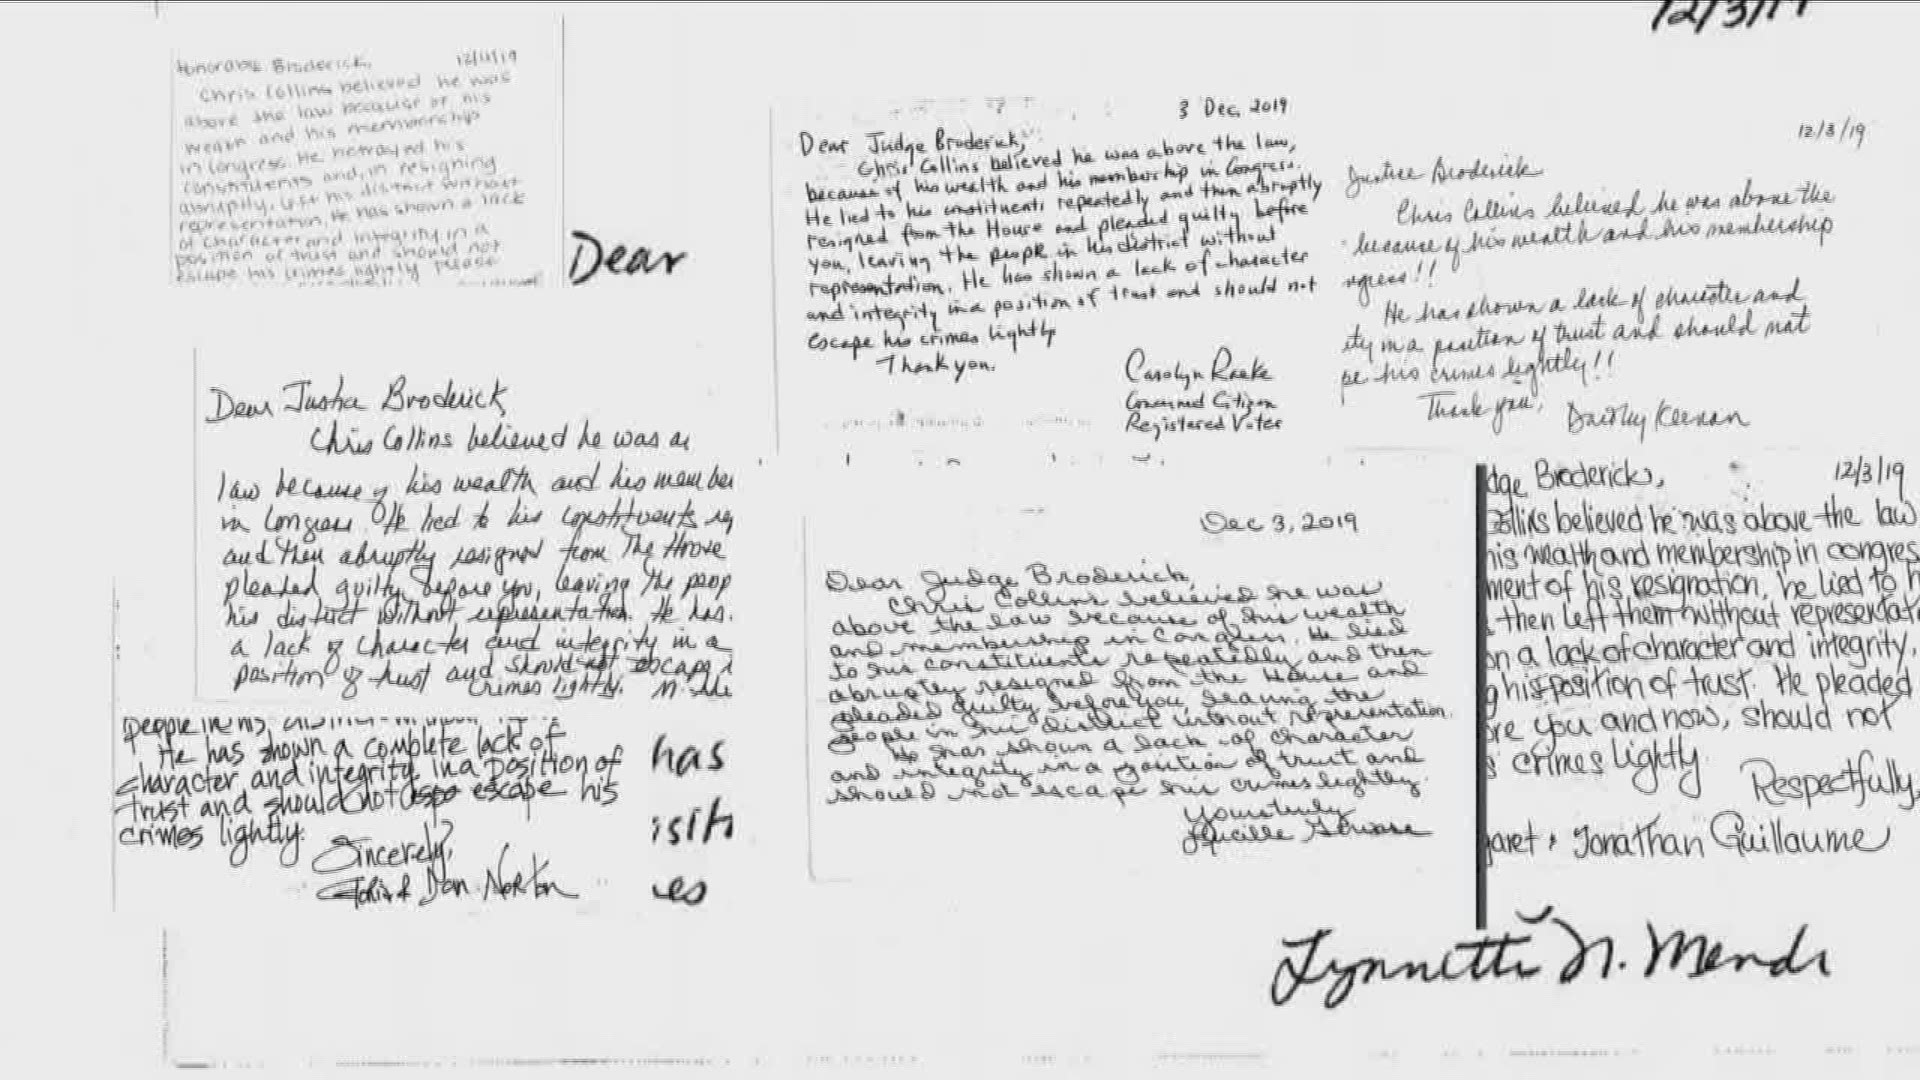 12/3/19
Honorable Broderick, 12/11/19
Chris Collins believed he was
above the law because of his
wealth and his membership
in Congress. He betrayed his
constituents and, in resigning
abruptly, left his district without
representation. He has shown a lack
of character and integrity in a
position of trust and should not
escape his crimes lightly. Please
Dear
3 Dec, 2019
Dear Judge Broderick,
Chris Collins believed he was above the law,
because of his wealth and his membership in Congress.
He lied to his constituents repeatedly and then abruptly
resigned from the House and pleaded guilty before
you, leaving the people in his district without
representation. He has shown a lack of character
and integrity in a position of trust and should not
escape his crimes lightly
Thank you.
Carolyn Raeke
Concerned Citizen
Registered Voter
12/3/19
Justice Broderick
Chris Collins believed he was above the
because of his wealth and his membership
ngress!!
He has shown a lack of character and
ity in a position of trust and should not
pe his crimes lightly!!
Thank you,
Dorothy Keenan
Dear Justice Broderick,
Chris Collins believed he was a
law because of his wealth and his member
in Congress. He lied to his constituents rep
and then abruptly resigned from The House
pleaded guilty before you, leaving the peop
his district without representation. He has
a lack of character and integrity in a
position of trust and should not escape
crimes lightly.
people in his
He has shown a complete lack of
character and integrity in a position of
trust and should not escape his
crimes lightly.
Sincerely,
Don Norton
has
es
Dec 3, 2019
Dear Judge Broderick,
Chris Collins believed he was
above the law because of his wealth
and membership in Congress. He lied
to his constituents repeatedly and then
abruptly resigned from the House and
pleaded guilty before you, leaving the
people in his district without representation.
He has shown a lack of character
and integrity in a position of trust and
should not escape his crimes lightly.
Yours truly
Lucille
dge Broderick, 12/3/19
Collins believed he was above the law
his wealth and membership in congres
ment of his resignation, he lied to h
then left them without representat
on a lack of character and integrity,
g his position of trust. He pleaded
ore you and now, should not
s crimes lightly
Respectfully,
garet & Jonathan Guillaume
Lynnette N.